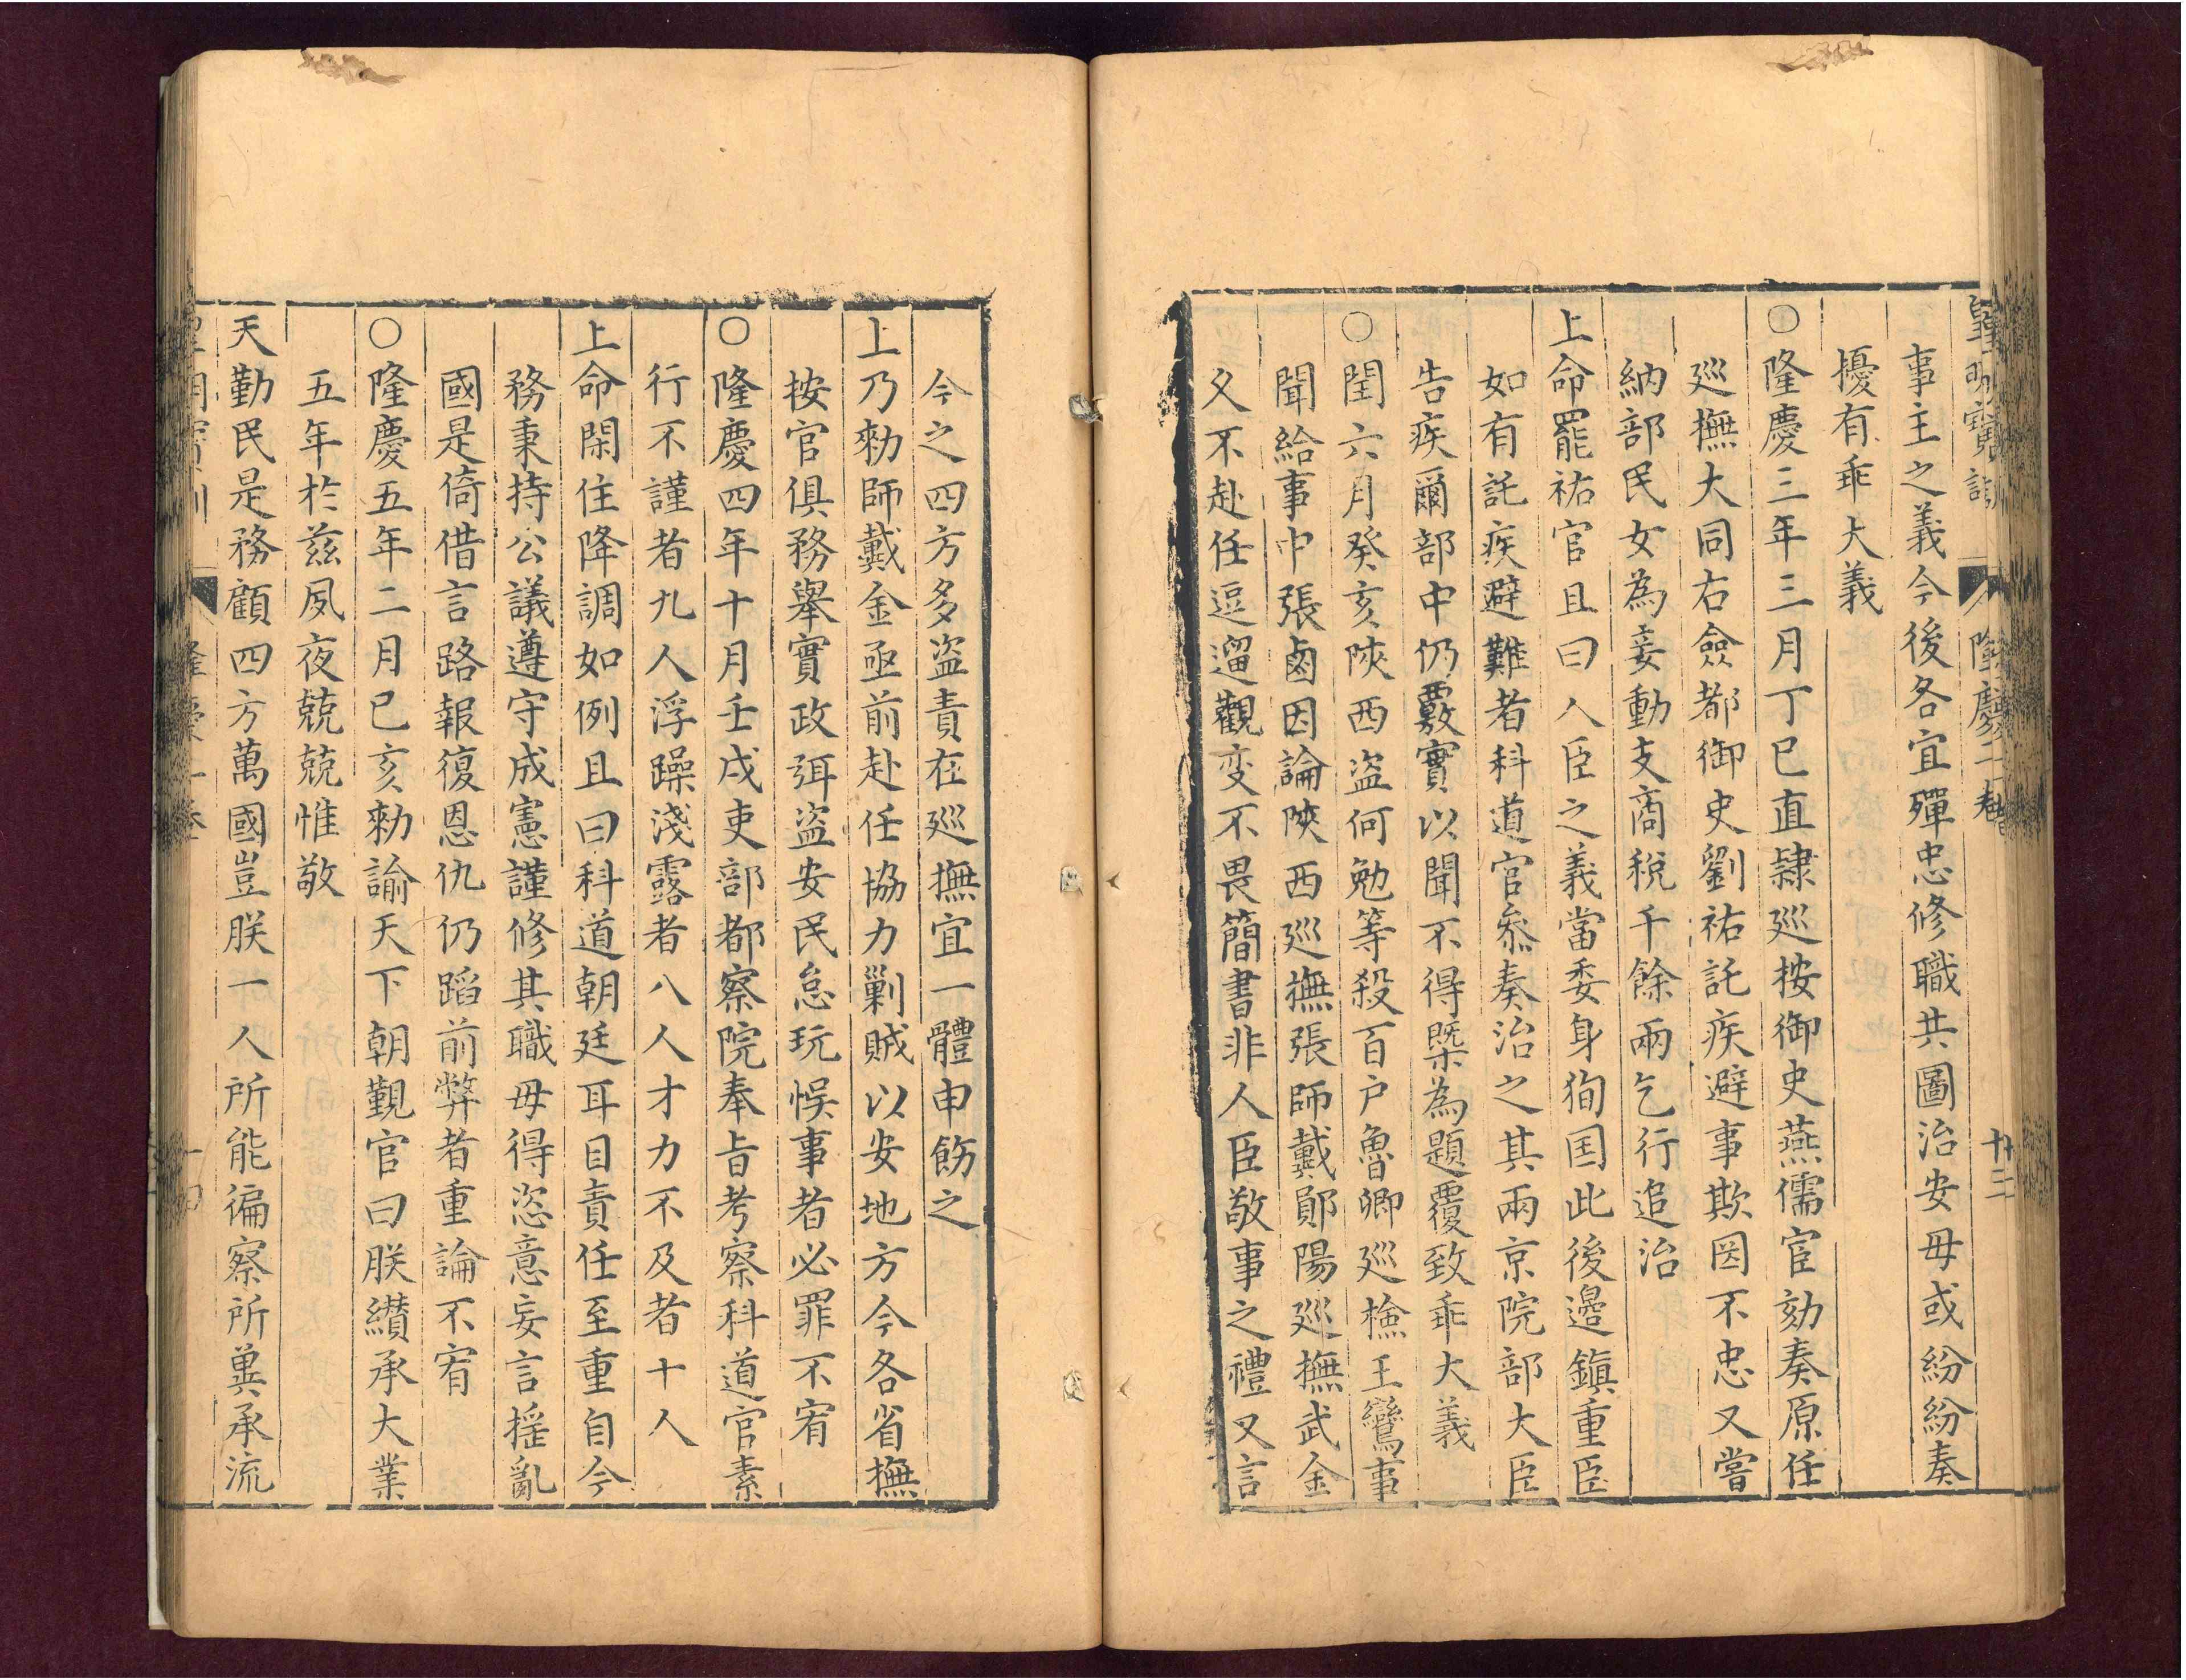 皇明寶訓 隆慶二卷 十三
事主之義今後各宜殫忠修職共圖治安毋或紛紛奏
擾有乖大義
○隆慶三年三月丁巳直隷巡按御史燕儒宦劾奏原任
巡撫大同右僉都御史劉祐託疾避事欺罔不忠又嘗
納部民女為妾動支商稅千餘兩乞行追治
上命罷祐官且曰人臣之義當委身狥国此後邊鎮重臣
如有託疾避難者科道官叅奏治之其兩京院部大臣
告疾爾部中仍覈實以聞不得槩為題覆致乖大義
○閏六月癸亥陜西盜何勉等殺百户魯卿巡檢王鸞事
聞給事中張鹵因論陜西巡撫張師戴鄖陽巡撫武金
久不赴任逗遛觀变不畏簡書非人臣敬事之禮又言
今之四方多盜責在巡撫宜一體申飭之
上乃勑師戴金亟前赴任協力剿賊以安地方今各省撫
按官俱務舉實政弭盜安民怠玩悞事者必罪不宥
○隆慶四年十月壬戌吏部都察院奉旨考察科道官素
行不謹者九人浮躁淺露者八人才力不及者十人
上命閑住降調如例且曰科道朝廷耳目責任至重自今
務秉持公議遵守成憲謹修其職毋得恣意妄言揺亂
國是倚借言路報復恩仇仍蹈前弊者重論不宥
○隆慶五年二月已亥勑諭天下朝覲官曰朕纘承大業
五年扵兹夙夜兢兢惟敬
天勤民是務顧四方萬國豈朕一人所能徧察所兾承流